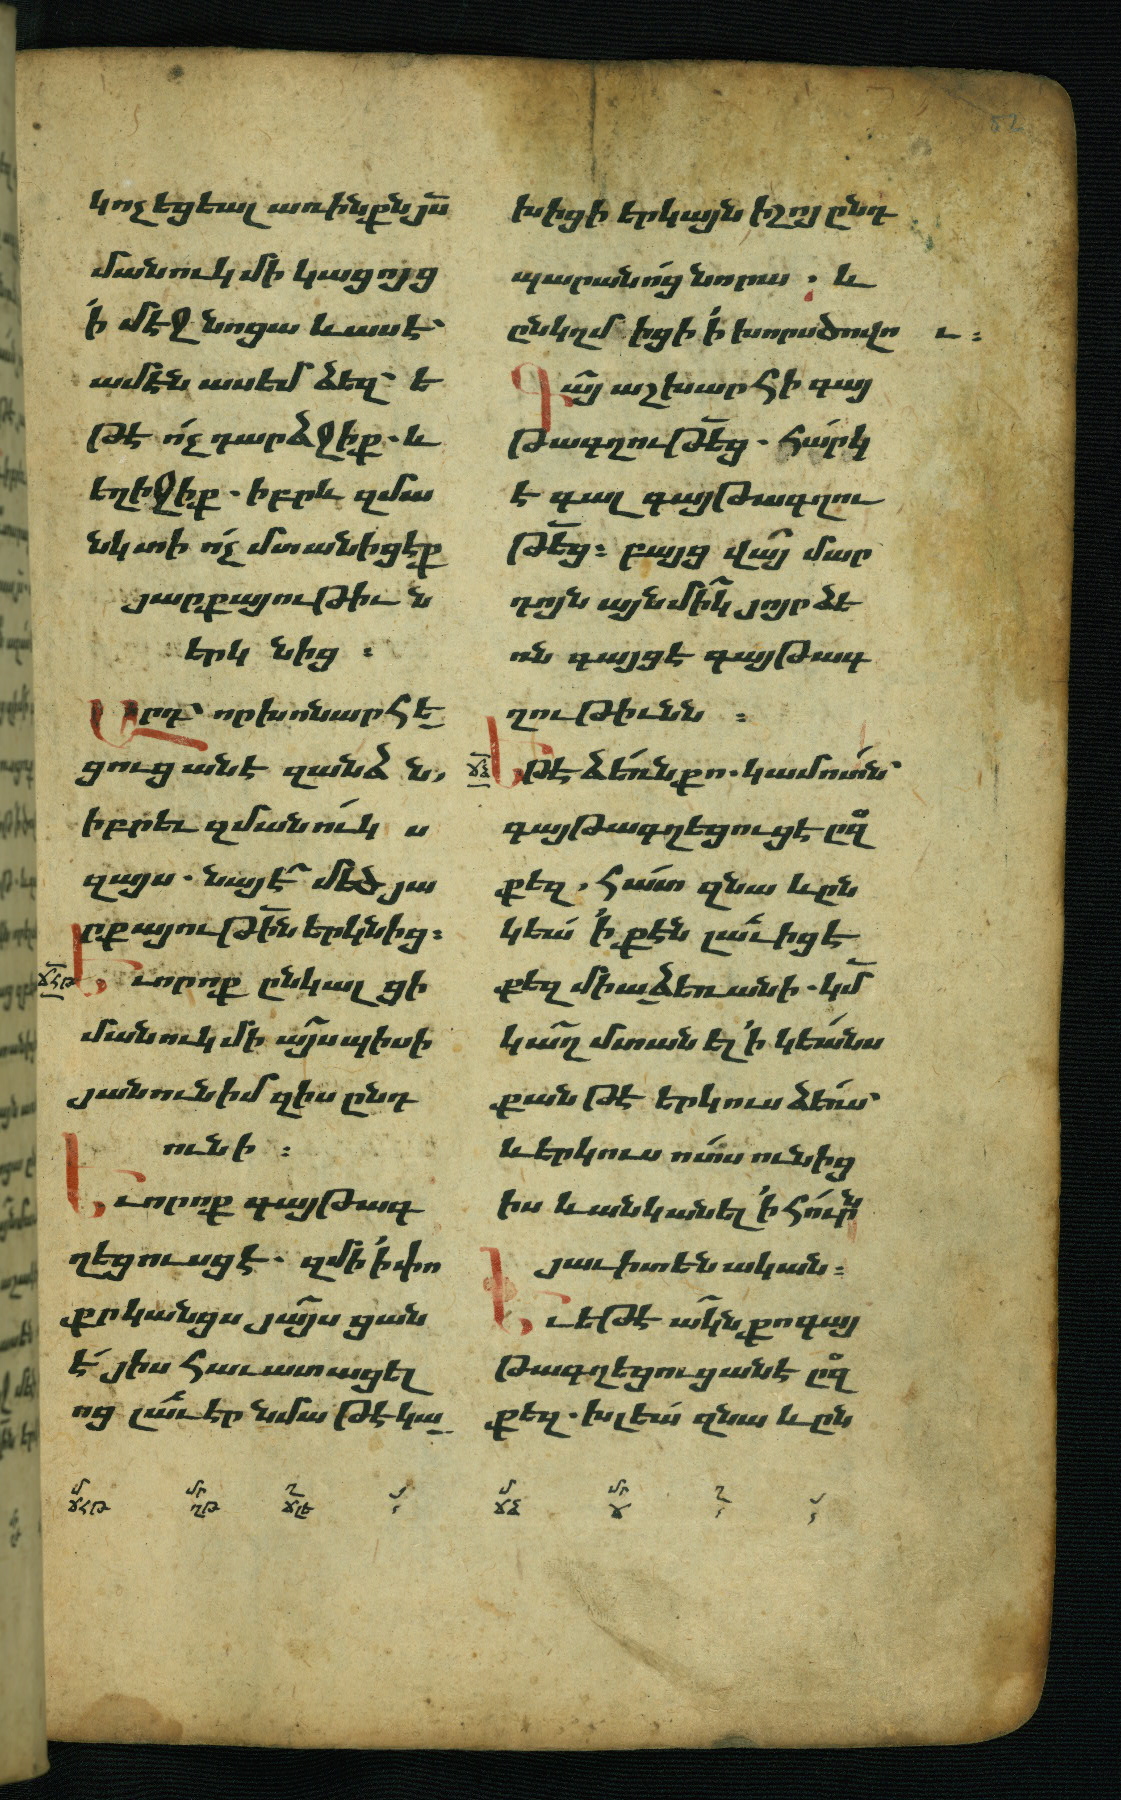 կոչեցեալ առինքնյս̅
մանուկ մի կացոյց
ի՛ մէջ նոցա և ասէ՝
ամէն ասեմ ձեզ՝ ե
թէ ո՛չ դարձջիք. և
եղիջիք. իբրև զմա
նկտի ո՛չ մտանիցէք
յարքայութիւն
երկնից ։
Արդ՝ որ խոնարհե
ցուցանէ զանձն,
իբրեւ զմանուկս
զայս. նայէ̅ մեծ յա
րքայութի̅ն երկնից։
ՃՀԹ Եւ որոք ընկալցի
մանուկ մի այ̅սպիսի
յանուն իմ զիս ընդ
ունի ։
Եւ որոք գայթագ
ղեցուսցէ. զմի՛ ի՛ փո
քրկանցս յայ̅սցան
է՛ յիս հաւատացել
ոց լա՛ւ էր նմա թէ կա
խիցի երկայն իշոյ ընդ
պարանո՛ց նորա . և
ընկղմիցի ի՛ խորս ծովու ։
Վա̅յ աշխարհի գայ
թագղութե̅ց. հա՛րկ
է գալ գայթագղու
թե̅ց։ բայց վա̅յ մար
դոյն այնմի̅կ յոյր ձե
ռն գայցէ գայթագ
ղութիւնն ։
ՃՁ Եթէ ձե՛ռն քո. կամ ո՛տն՝
գայթագղեցուցէ ըզ
քեզ, հա՛տ զնա և ըն
կեա՛ ի՛ քէն լա՛ւ իցէ
քեզ միաձեռանի. կմ̅
կա̅ղ մտանել ի՛ կեա՛նս
քան թէ երկուս ձե՛ռս՝
և երկուս ո՛տս ունից
իս և անկանել ի՛ հո՛ւրն
յաւիտենական։
Եւ եթէ ա̅կն քո գայ
թագղեցուցանէ ըզ
քեզ. խլեա՛ զնա և ըն
մ ՃՀԹ մր ՂԹ ղ ՃԼԵ
մ ՃՁ մր Ճ ղ